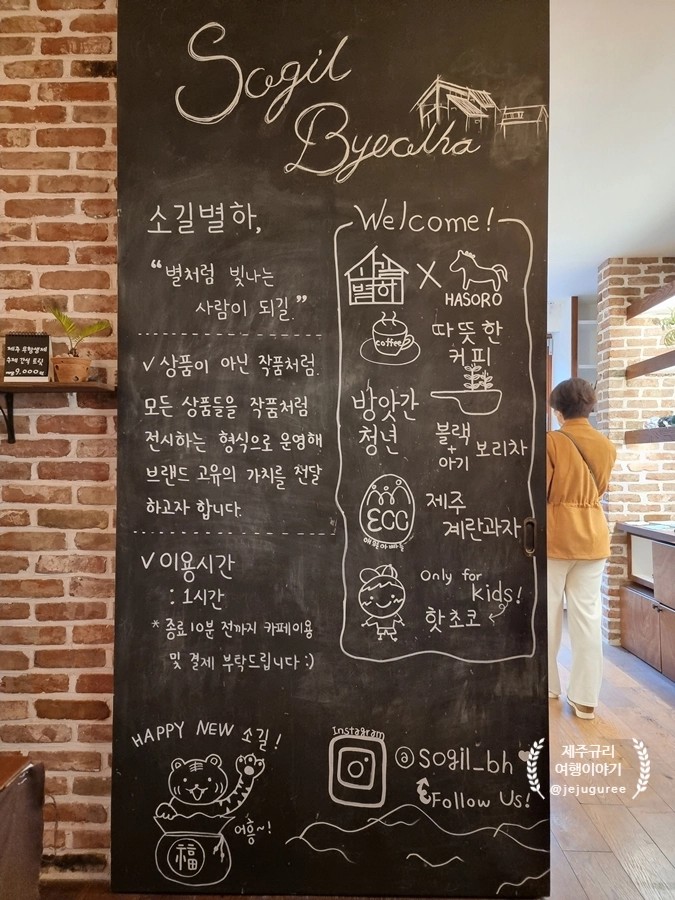 Sogil
Byeolha
소길별하,
“별처럼 빛나는
사람이 되길.”
✓상품이 아닌 작품처럼.
모든 상품들을 작품처럼
전시하는 형식으로 운영해
브랜드 고유의 가치를 전달
하고자 합니다.
✓이용시간
: 1시간
* 종료 10분 전까지 카페이용
및 결제 부탁드립니다 :)
Welcome!
소길
별하
X
HASORO
coffee
따뜻한
커피
방앗간
청년
블랙
+
아기
보리차
ECC
애월아빠들
제주
계란과자
Only for
kids!
핫초코
HAPPY NEW 소길!
어흥~!
福
Instagram
@sogil_bh
Follow Us!
제주
수제 간식 트릿
9,000원
제주규리
여행이야기
@jejuguree